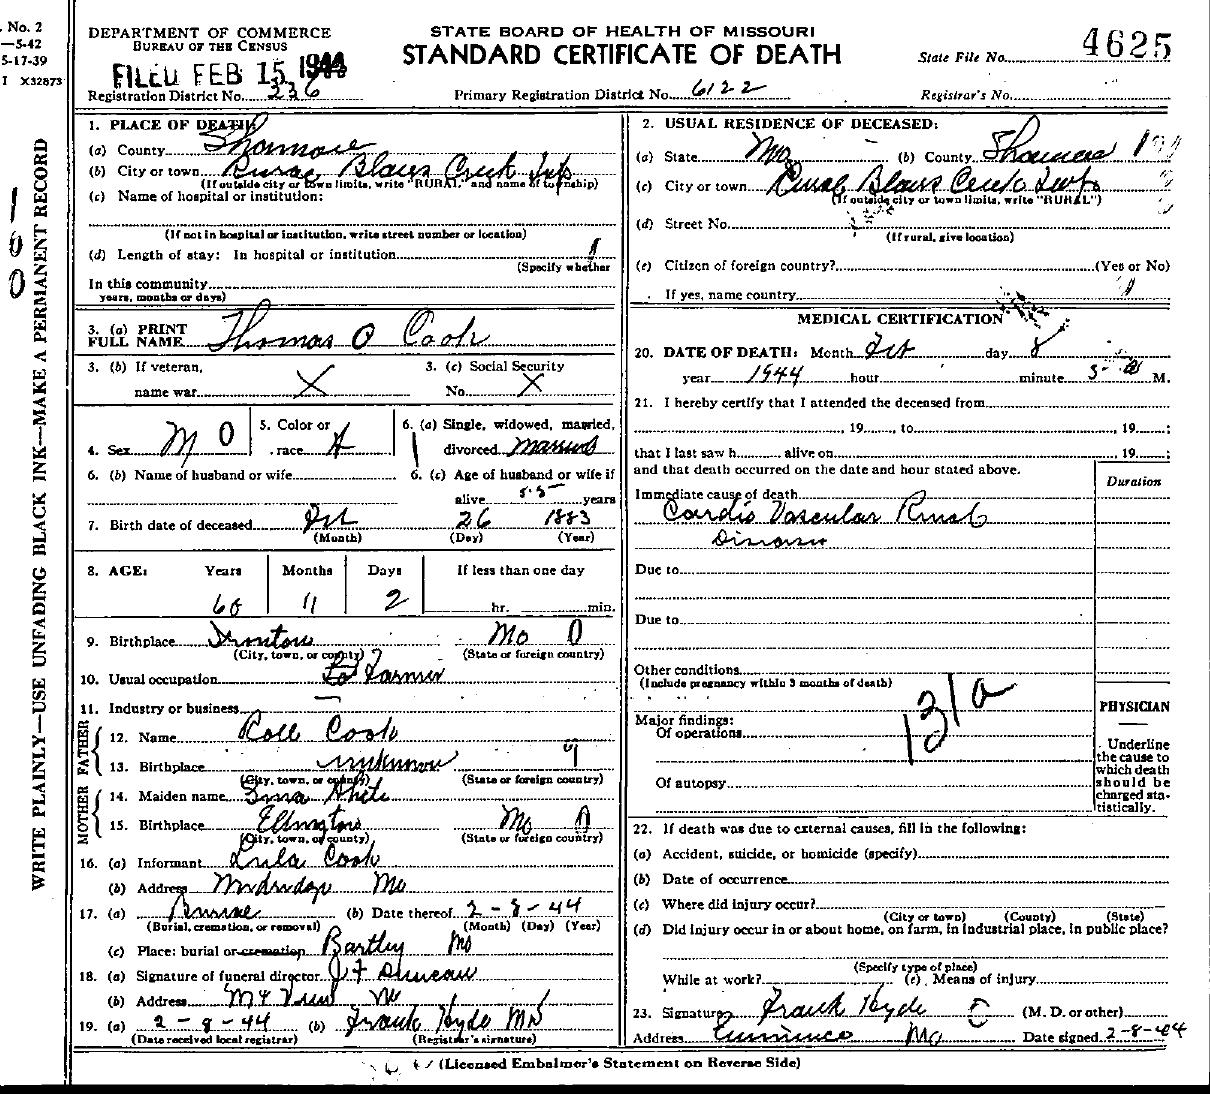 . No. 2
—5-42
5-17-39
I X32873
WRITE PLAINLY—USE UNFADING BLACK INK—MAKE A PERMANENT RECORD
100
DEPARTMENT OF COMMERCE
BUREAU OF THE CENSUS
FILED FEB 15 1944
Registration District No. 336
STATE BOARD OF HEALTH OF MISSOURI
STANDARD CERTIFICATE OF DEATH
Primary Registration District No. 6122
State File No. 4625
Registrar's No.
1. PLACE OF DEATH:
(a) County Shannon
(b) City or town Rural Blairs Creek Twp
(If outside city or town limits, write "RURAL" and name of township)
(c) Name of hospital or institution:
(If not in hospital or institution, write street number or location)
(d) Length of stay: In hospital or institution
(Specify whether
In this community
years, months or days)
3. (a) PRINT FULL NAME Thomas O Cook
3. (b) If veteran, name war X
3. (c) Social Security No. X
4. Sex M 0
5. Color or race
6. (a) Single, widowed, married, divorced Married
6. (b) Name of husband or wife
6. (c) Age of husband or wife if alive 55 years
7. Birth date of deceased Feb 26 1883
(Month) (Day) (Year)
8. AGE: Years Months Days If less than one day
60 11 2 hr. min.
9. Birthplace Ironton Mo 0
(City, town, or county) (State or foreign country)
10. Usual occupation Farmer
11. Industry or business
FATHER
12. Name Cook
13. Birthplace unknown
(City, town, or county) (State or foreign country)
MOTHER
14. Maiden name
15. Birthplace Ellington Mo
(City, town, or county) (State or foreign country)
16. (a) Informant Lula Cook
(b) Address Mo
17. (a) Burial (b) Date thereof 2-8-44
(Burial, cremation, or removal) (Month) (Day) (Year)
(c) Place: burial or cremation Bartley Mo
18. (a) Signature of funeral director J F Duncan
(b) Address Mt View Mo
19. (a) 2-8-44 (b) Frank Hyde MD
(Date received local registrar) (Registrar's signature)
2. USUAL RESIDENCE OF DECEASED:
(a) State Mo (b) County Shannon
(c) City or town Rural Blairs Creek Twp
(If outside city or town limits, write "RURAL")
(d) Street No.
(If rural, give location)
(e) Citizen of foreign country? (Yes or No)
If yes, name country
MEDICAL CERTIFICATION
20. DATE OF DEATH: Month Feb day 8
year 1944 hour minute 5 M.
21. I hereby certify that I attended the deceased from
, 19 , to , 19 ;
that I last saw h alive on , 19 ;
and that death occurred on the date and hour stated above.
Duration
Immediate cause of death
Cardio Vascular Renal
Disease
Due to
Due to
Other conditions
(Include pregnancy within 3 months of death)
131a
Major findings:
Of operations
Of autopsy
PHYSICIAN
Underline
the cause to
which death
should be
charged sta-
tistically.
22. If death was due to external causes, fill in the following:
(a) Accident, suicide, or homicide (specify)
(b) Date of occurrence
(c) Where did injury occur?
(City or town) (County) (State)
(d) Did injury occur in or about home, on farm, in industrial place, in public place?
(Specify type of place)
While at work? (e) Means of injury
23. Signature Frank Hyde (M. D. or other)
Address Eminence Mo Date signed 2-8-44
(Licensed Embalmer's Statement on Reverse Side)